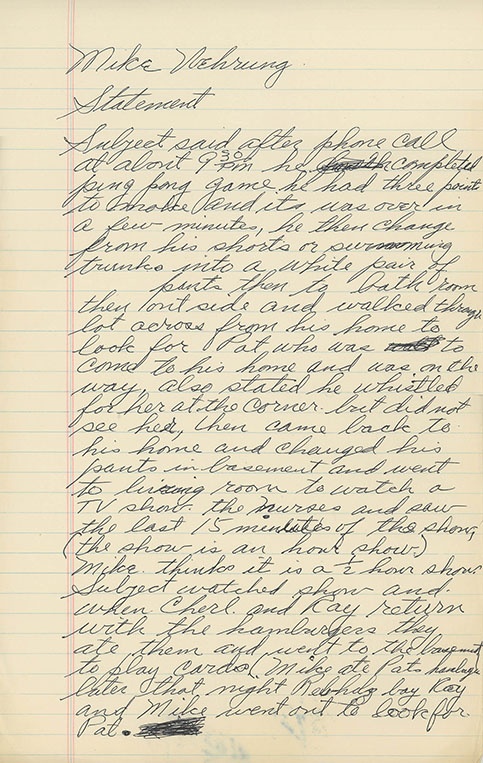 Mike Nehrung
Statement
Subject said after phone call
at about 9 30 pm he completed
ping pong game he had three point
to make and its was over in
a few minutes, he then change
from his shorts or swimming
trunks into a white pair of
pants then to bath room
then out side and walked through
lot across from his home to
look for Pat who was to
come to his home and was on the
way, also stated he whistled
for her at the corner but did not
see her, then came back to
his home and changed his
pants in basement and went
to living room to watch a
TV show. the Nurses and saw
the last 15 minutes of the show,
(the show is an hour show)
Mike thinks it is a ½ hour show.
Subject watched show and
when Cherl and Ray return
with the hamburgers they
ate them and went to the basement
to play cards (Mike ate Pats hamburger
later that night boy Ray
and Mike went out to look for
Pat.